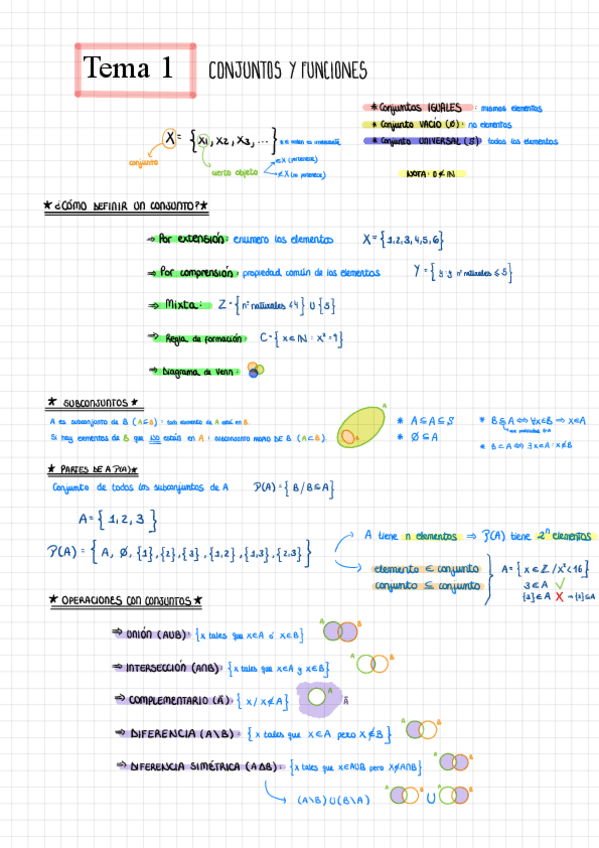 Tema 1 CONJUNTOS Y FUNCIONES
* Conjuntos IGUALES : mismos elementos
* Conjunto VACÍO (Ø): no elementos
* Conjunto UNIVERSAL (S) todos los elementos
X = { x₁, x₂, x₃, ... }
conjunto
cierto objeto
∈ X (pertenece)
∉ X (no pertenece)
NOTA: 0 ∉ ℕ
* ¿CÓMO DEFINIR UN CONJUNTO? *
⇒ Por extensión: enumero los elementos X = {1,2,3,4,5,6}
⇒ Por comprensión: propiedad común de los elementos Y = { y : y nº naturales ≤ 5 }
⇒ Mixta: Z = { nº naturales < 4 } ∪ { 5 }
⇒ Regla de formación: C = { x ∈ ℕ : x² = 9 }
⇒ Diagrama de Venn:
* SUBCONJUNTOS *
A es subconjunto de B (A ⊆ B) : todo elemento de A está en B.
Si hay elementos de B que NO están en A : SUBCONJUNTO PROPIO DE B (A ⊂ B)
A
* A ⊆ A ⊆ S
* Ø ⊆ A
* PARTES DE A P(A) *
Conjunto de todos los subconjuntos de A P(A) = { B / B ⊆ A }
A = { 1, 2, 3 }
P(A) = { A, Ø, {1}, {2}, {3}, {1,2}, {1,3}, {2,3} }
A tiene n elementos ⇒ P(A) tiene 2ⁿ elementos
elemento ∈ conjunto
conjunto ⊆ conjunto
A = { x ∈ Z / x² < 16 }
3 ∈ A ✓
{3} ∈ A ✗ → {3} ⊆ A
* OPERACIONES CON CONJUNTOS *
⇒ UNIÓN (A∪B): { x tales que x∈A ó x∈B } A B
⇒ INTERSECCIÓN (A∩B): { x tales que x∈A y x∈B } A B
⇒ COMPLEMENTARIO (Ā): { x / x ∉ A } A Ā
⇒ DIFERENCIA (A\B): { x tales que x∈A pero x∉B } A B
⇒ DIFERENCIA SIMÉTRICA (A Δ B): { x tales que x∈A∪B pero x∉A∩B } A B
(A\B) ∪ (B\A) A B ∪ A B